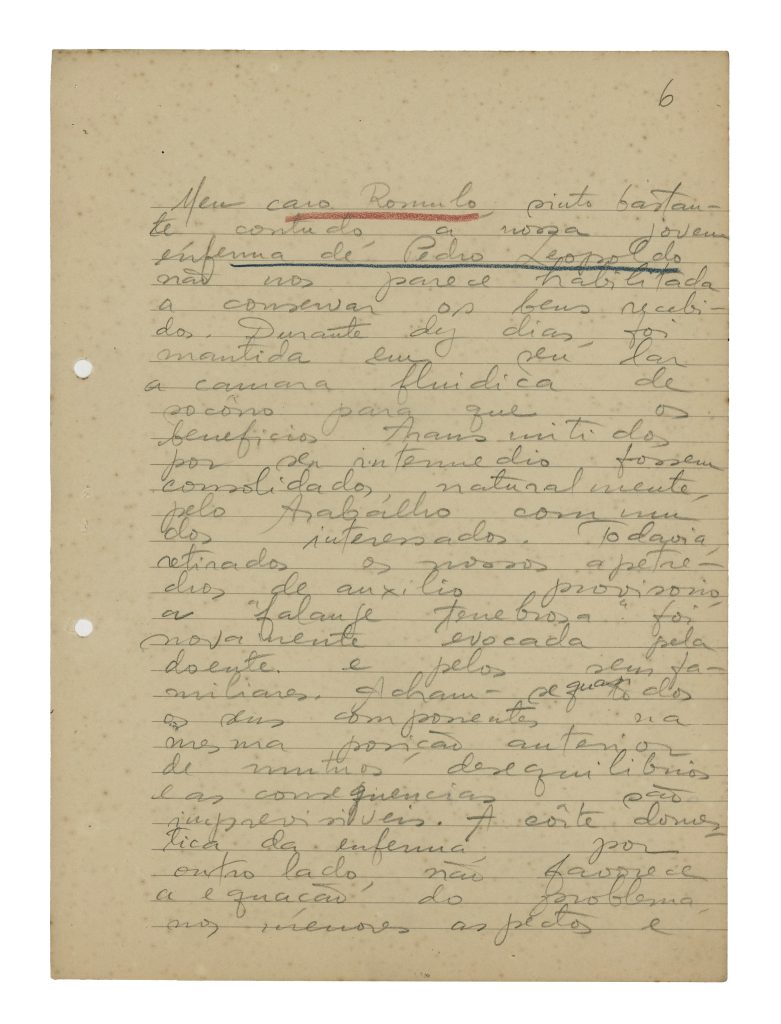 6
Meu caro Romulo, sinto bastan-
te contudo a nossa jovem
enferma de Pedro Leopoldo
não nos parece habilitada
a conservar os bens recebi-
dos. Durante dez dias, foi
mantida em seu lar
a camara fluidica de
socôrro para que os
beneficios transmitidos
por seu intermedio fossem
consolidados, naturalmente,
pelo trabalho commum
dos interessados. Todavia,
retirados os nossos apetre-
chos de auxilio provisorio,
a "falange tenebrosa" foi
novamente evocada pela
doente e pelos seus fa-
miliares. Acham-se quasi todos
os seus componentes na
mesma posição anterior
de mutuos desequilibrios
e as consequencias são
imprevisiveis. A côrte domes-
tica da enferma, por
outro lado, não favorece
a equação do problema,
nos menores aspectos e